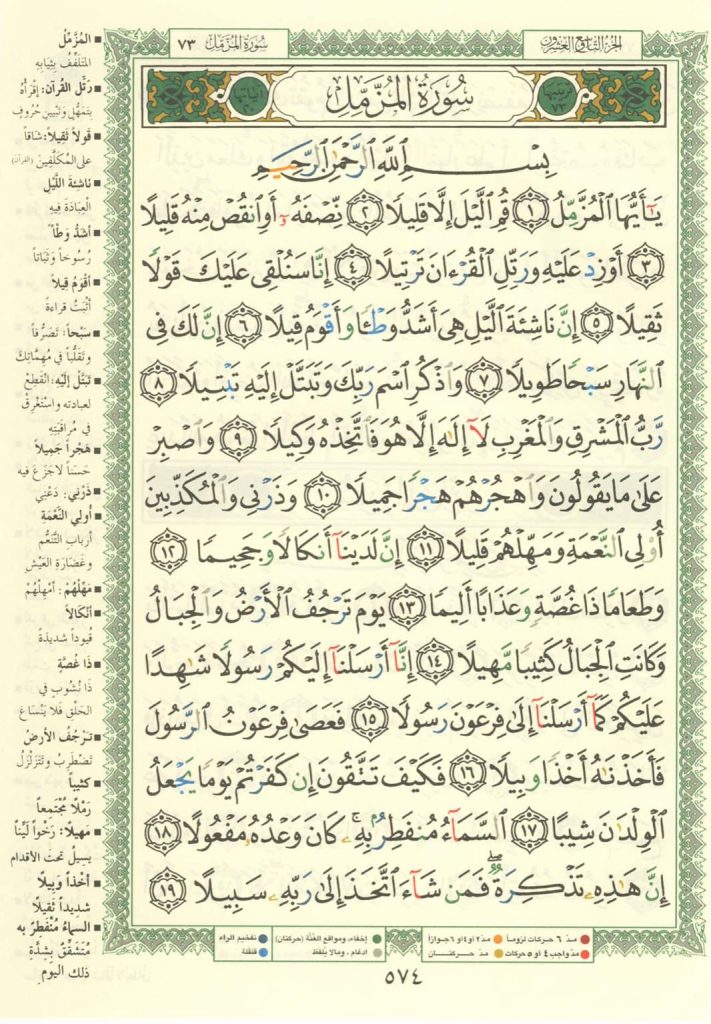 الجزء التاسع والعشرون
سورة المزمل ٧٣
ترتيبها ٧٣
سُورَةُ المُزَّمِّلِ
آياتها ٢٠
بِسْمِ اللَّهِ الرَّحْمَٰنِ الرَّحِيمِ
يَٰٓأَيُّهَا ٱلْمُزَّمِّلُ ١ قُمِ ٱلَّيْلَ إِلَّا قَلِيلًا ٢ نِّصْفَهُۥٓ أَوِ ٱنقُصْ مِنْهُ قَلِيلًا
٣ أَوْ زِدْ عَلَيْهِ وَرَتِّلِ ٱلْقُرْءَانَ تَرْتِيلًا ٤ إِنَّا سَنُلْقِى عَلَيْكَ قَوْلًا
ثَقِيلًا ٥ إِنَّ نَاشِئَةَ ٱلَّيْلِ هِىَ أَشَدُّ وَطْـًٔا وَأَقْوَمُ قِيلًا ٦ إِنَّ لَكَ فِى
ٱلنَّهَارِ سَبْحًا طَوِيلًا ٧ وَٱذْكُرِ ٱسْمَ رَبِّكَ وَتَبَتَّلْ إِلَيْهِ تَبْتِيلًا ٨
رَّبُّ ٱلْمَشْرِقِ وَٱلْمَغْرِبِ لَآ إِلَٰهَ إِلَّا هُوَ فَٱتَّخِذْهُ وَكِيلًا ٩ وَٱصْبِرْ
عَلَىٰ مَا يَقُولُونَ وَٱهْجُرْهُمْ هَجْرًا جَمِيلًا ١٠ وَذَرْنِى وَٱلْمُكَذِّبِينَ
أُو۟لِى ٱلنَّعْمَةِ وَمَهِّلْهُمْ قَلِيلًا ١١ إِنَّ لَدَيْنَآ أَنكَالًا وَجَحِيمًا ١٢
وَطَعَامًا ذَا غُصَّةٍ وَعَذَابًا أَلِيمًا ١٣ يَوْمَ تَرْجُفُ ٱلْأَرْضُ وَٱلْجِبَالُ
وَكَانَتِ ٱلْجِبَالُ كَثِيبًا مَّهِيلًا ١٤ إِنَّآ أَرْسَلْنَآ إِلَيْكُمْ رَسُولًا شَٰهِدًا
عَلَيْكُمْ كَمَآ أَرْسَلْنَآ إِلَىٰ فِرْعَوْنَ رَسُولًا ١٥ فَعَصَىٰ فِرْعَوْنُ ٱلرَّسُولَ
فَأَخَذْنَٰهُ أَخْذًا وَبِيلًا ١٦ فَكَيْفَ تَتَّقُونَ إِن كَفَرْتُمْ يَوْمًا يَجْعَلُ
ٱلْوِلْدَٰنَ شِيبًا ١٧ ٱلسَّمَآءُ مُنفَطِرٌۢ بِهِۦ ۚ كَانَ وَعْدُهُۥ مَفْعُولًا ١٨
إِنَّ هَٰذِهِۦ تَذْكِرَةٌ ۖ فَمَن شَآءَ ٱتَّخَذَ إِلَىٰ رَبِّهِۦ سَبِيلًا ١٩
■ المُزَّمِّلُ
المتَلفِّفُ بِثِيابِهِ
■ رتِّل القُرآن: اقْرَأْهُ
بتمهُّلٍ وَتَبْيينِ حُرُوفٍ
■ قَولاً ثَقِيلاً: شَاقاً
على المُكَلَّفِينَ (القرآن)
■ ناشِئةَ اللَّيْل
العِبَادَةَ فِيهِ
■ أشَدُّ وَطْأً
رُسُوخاً وَثَبَاتاً
■ أقْوَمُ قِيلاً
أثْبَتُ قراءةً
■ سَبْحاً: تَصَرُّفاً
وتَقَلُّباً في مُهِمَّاتِكَ
■ تَبَتَّلْ إليْهِ: انْقَطِعْ
لعبادته واسْتَغْرِقْ
في مُراقَبَتِهِ
■ هَجْراً جَمِيلاً
حَسَناً لاجَزَعَ فيه
■ ذَرْنِي: دَعْنِي
■ أُولِي النَّعْمَةِ
أربابَ التَّنَعُّمِ
وغَضَارَةِ العَيْشِ
■ مَهِّلْهُمْ: أمْهِلْهُمْ
■ أنْكَالاً
قُيوداً شَديدَةً
■ ذَا غُصَّةٍ
ذَا نُشُوبٍ فِي
الحَلْقِ فلا يَنْسَاغ
■ تَرْجُفُ الأرضُ
تَضْطَرِبُ وتَتَزَلْزَلُ
■ كثيباً
رَمْلاً مُجْتَمعاً
■ مَهيلاً: رَخْواً لَيِّناً
يسيلُ تحتَ الأقدام
■ أخذاً وَبِيلاً
شديداً ثَقيلاً
■ السماءُ مُنْفَطِرٌ به
مُتَشَقِّقٌ بِشِدَّةِ
ذلك اليوم
مدّ ٦ حركات لزوماً مدّ ٢ أو ٤ أو ٦ جوازاً
مدّ واجب ٤ أو ٥ حركات مدّ حركتان
إخفاء، ومواقع الغُنَّة (حركتان)
ادغام، وما لا يُلفَظ
تفخيم الراء
قلقلة
٥٧٤